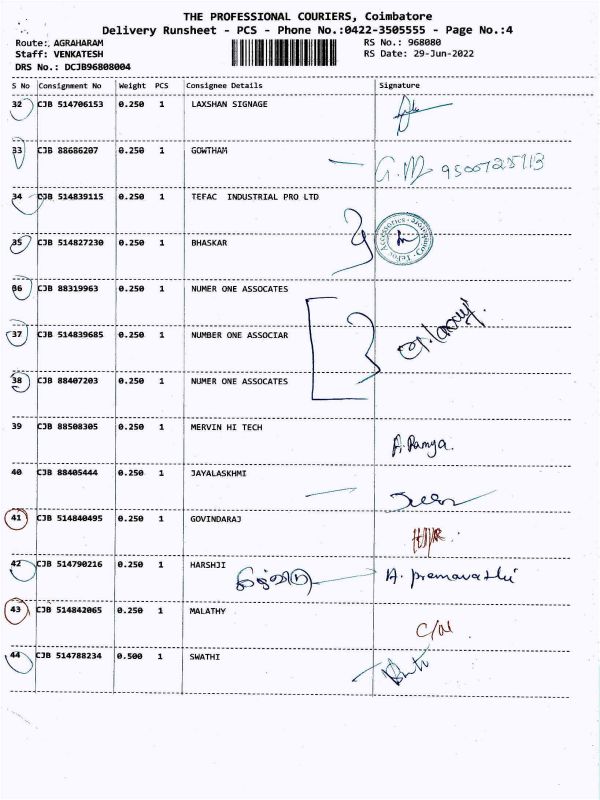 THE PROFESSIONAL COURIERS, Coimbatore
Delivery Runsheet - PCS - Phone No.:0422-3505555 - Page No.:4
Route: AGRAHARAM RS No.: 968080
Staff: VENKATESH RS Date: 29-Jun-2022
DRS No.: DCJB96808004
S No Consignment No Weight PCS Consignee Details Signature
32 CJB 514706153 0.250 1 LAXSHAN SIGNAGE
33 CJB 88686207 0.250 1 GOWTHAM
G.M 9500725713
34 CJB 514839115 0.250 1 TEFAC INDUSTRIAL PRO LTD
35 CJB 514827230 0.250 1 BHASKAR
36 CJB 88319963 0.250 1 NUMER ONE ASSOCATES
37 CJB 514839685 0.250 1 NUMBER ONE ASSOCIAR
38 CJB 88407203 0.250 1 NUMER ONE ASSOCATES
39 CJB 88508305 0.250 1 MERVIN HI TECH
A. Ramya.
40 CJB 88405444 0.250 1 JAYALASKHMI
41 CJB 514840495 0.250 1 GOVINDARAJ
42 CJB 514790216 0.250 1 HARSHJI
A. premavathi
43 CJB 514842065 0.250 1 MALATHY
44 CJB 514788234 0.500 1 SWATHI